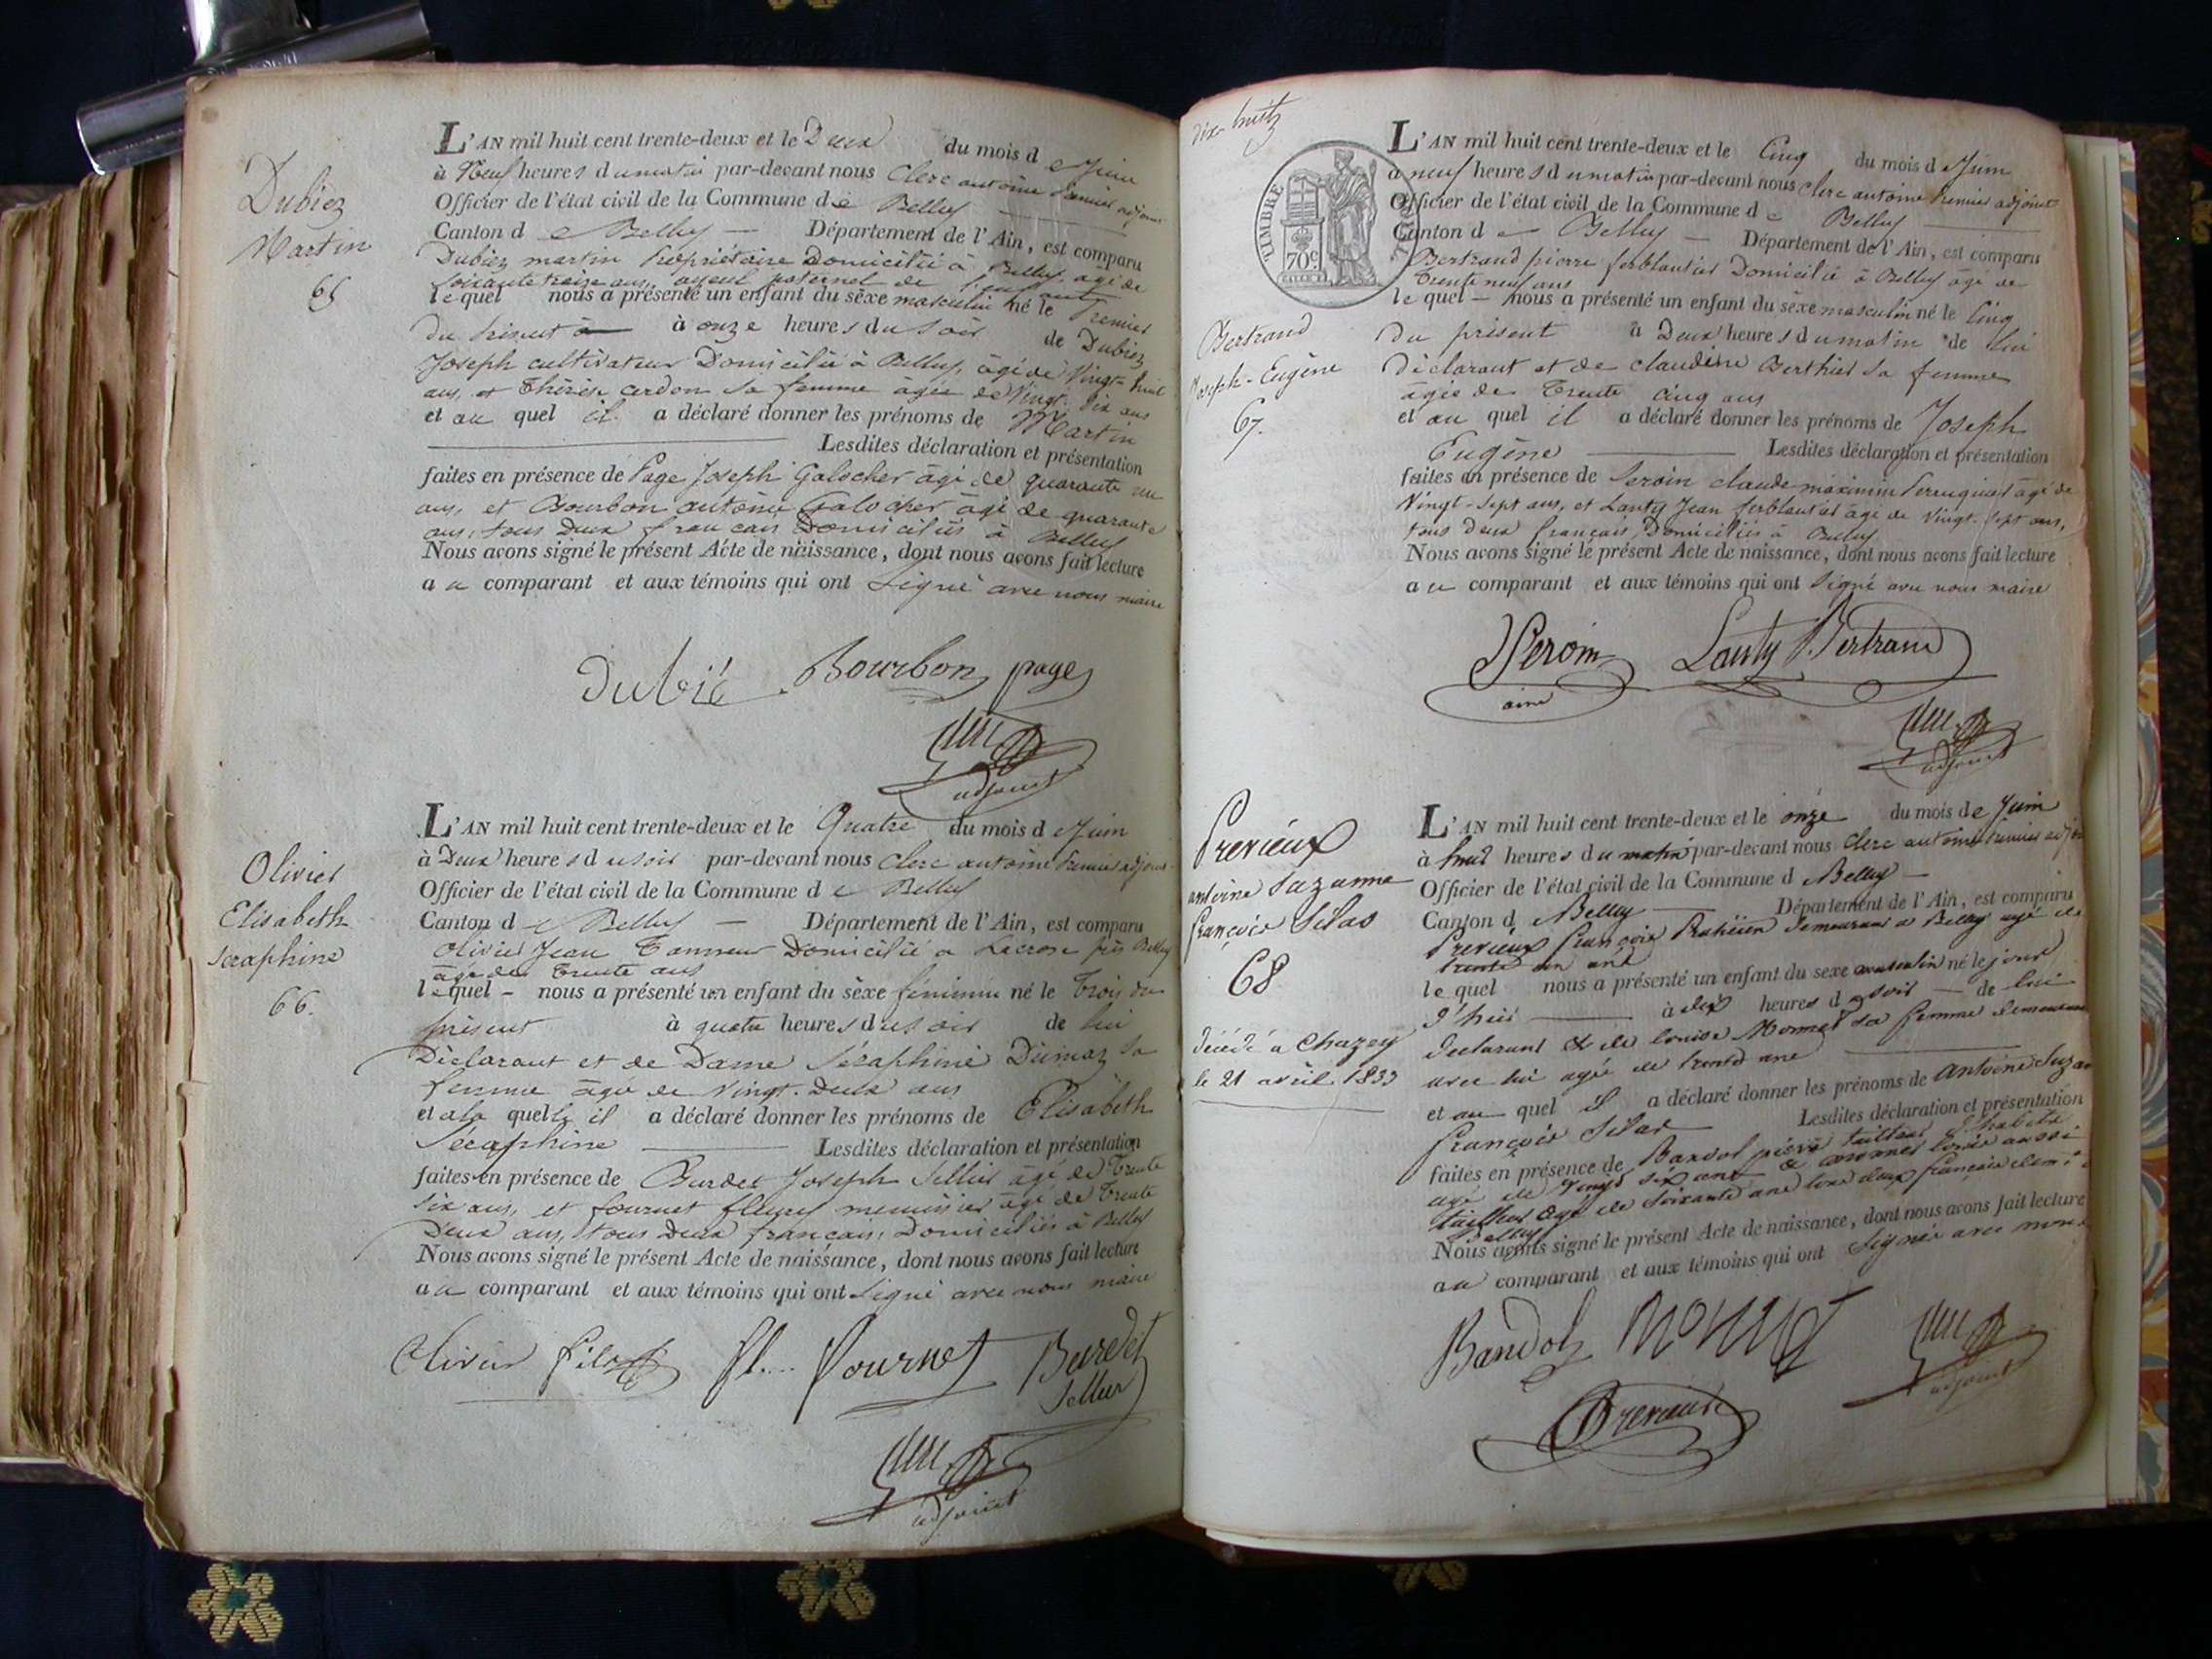 Dubiez
Martin
65
L'AN mil huit cent trente-deux et le Deux du mois de Juin
à Neuf heures du matin par-devant nous Clerc antoine Premier adjoint
Officier de l'état civil de la Commune de Belley
Canton de Belley Département de l'Ain, est comparu
Dubiez martin Propriétaire Domicilié à Belley, âgé de
soixante treize ans, ayeul paternel de l'enfant
lequel nous a présenté un enfant du sèxe masculin né le Premier
du présent à onze heures du soir de Dubiez
Joseph cultivateur Domicilié à Belley, âgé de Vingt-huit
ans, et Thérèse cardon sa femme agée de Vingt-Six ans
et au quel il a déclaré donner les prénoms de Martin
Lesdites déclaration et présentation
faites en présence de Page Joseph Galocher âgé de quarante un
ans, et Bourbon antoine Galocher âgé de quarante
ans, tous Deux français Domiciliés à Belley
Nous avons signé le présent Acte de naissance, dont nous avons fait lecture
au comparant et aux témoins qui ont Signé avec nous maire
Dubié Bourbon page
adjoint
Olivier
Elisabeth
Seraphine
66.
L'AN mil huit cent trente-deux et le Quatre du mois de Juin
à Deux heures du soir par-devant nous Clerc antoine Premier adjoint
Officier de l'état civil de la Commune de Belley
Canton de Belley Département de l'Ain, est comparu
Olivier Jean Tanneur Domicilié a Lacrose près Belley
âgé de Trente ans
lequel nous a présenté un enfant du sèxe féminin né le Trois du
présent à quatre heures du soir de lui
Déclarant et de Dame Séraphine Dumaz sa
femme âgée de Vingt-Deux ans
et a la quelle il a déclaré donner les prénoms de Elisabeth
Séraphine Lesdites déclaration et présentation
faites en présence de Burdet Joseph Sellier âgé de Trente
six ans, et fournet fleury menuisier âgé de Trente
Deux ans, tous Deux français, Domiciliés à Belley
Nous avons signé le présent Acte de naissance, dont nous avons fait lecture
au comparant et aux témoins qui ont Signé avec nous maire
Olivier fils fl... fournet Burdet
Sellier
adjoint
dix-huit
TIMBRE ROYAL
70c
Bertrand
Joseph-Eugène
67.
L'AN mil huit cent trente-deux et le Cinq du mois de Juin
à neuf heures du matin par-devant nous clerc antoine Premier adjoint
Officier de l'état civil de la Commune de Belley
Canton de Belley Département de l'Ain, est comparu
Bertrand pierre ferblantier Domicilié à Belley âgé de
Trente neuf ans
lequel nous a présenté un enfant du sèxe masculin né le Cinq
du présent à Deux heures du matin de lui
Déclarant et de claudine Berthier sa femme
âgée de Trente cinq ans
et au quel il a déclaré donner les prénoms de Joseph
Eugène Lesdites déclaration et présentation
faites en présence de Peroin claude maximin Perruquier âgé de
Vingt-Sept ans, et Lanty Jean ferblantier âgé de Vingt-Sept ans,
tous Deux français, Domiciliés à Belley
Nous avons signé le présent Acte de naissance, dont nous avons fait lecture
au comparant et aux témoins qui ont Signé avec nous maire
Peroin Lanty P. Bertrand
ainé
adjoint
Prerieux
antoine Suzanne
françois Silas
68
décédé a Chazey
le 21 avril 1833
L'AN mil huit cent trente-deux et le onze du mois de Juin
à huit heures du matin par-devant nous Clerc antoine Premier adjoint
Officier de l'état civil de la Commune d Belley
Canton de Belley Département de l'Ain, est comparu
Prerieux françois Praticien demeurant a Belley agé de
trente un ans
lequel nous a présenté un enfant du sexe masculin né le jour
d'hier à dix heures du soir de lui
declarant & de louise Monnet sa femme demeurant
avec lui agée de trente ans
et au quel il a déclaré donner les prénoms de antoine Suzanne
françois Silas Lesdites déclaration et présentation
faites en présence de Bandol pierre tailleur d'habits
agé de vingt six ans & monnet louis aussi
tailleur agé de soixante ans tous deux français
Belley
Nous avons signé le présent Acte de naissance, dont nous avons fait lecture
au comparant et aux témoins qui ont signés avec nous
Bandol Monnet
Prerieux
adjoint